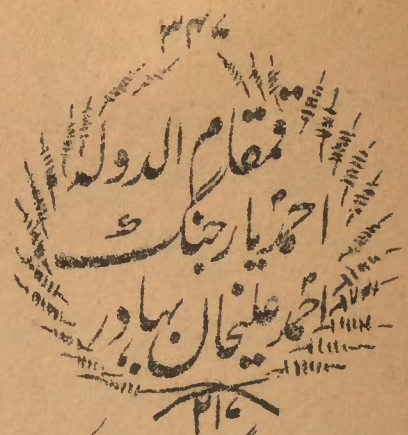 قمقام الدولہ
احمد یار جنگ
احمد علیخان بہادر